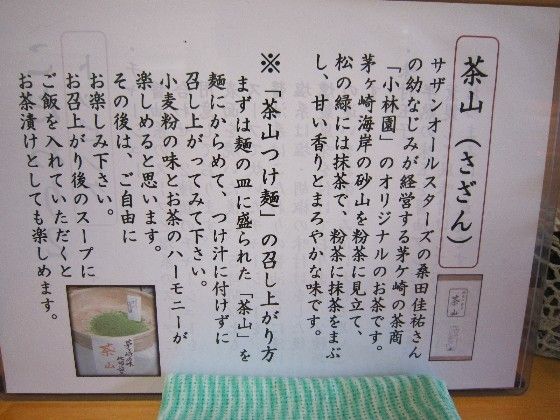 茶山（さざん）
サザンオールスターズの桑田佳祐さん
の幼なじみが経営する茅ヶ崎の茶商
「小林園」のオリジナルのお茶です。
茅ヶ崎海岸の砂山を粉茶に見立て、
松の緑には抹茶で、粉茶に抹茶をまぶ
し、甘い香りとまろやかな味です。
※「茶山つけ麵」の召し上がり方
まずは麵の皿に盛られた「茶山」を
麵にからめて、つけ汁に付けずに
召し上がってみて下さい。
小麦粉の味とお茶のハーモニーが
楽しめると思います。
その後は、ご自由に
お楽しみ下さい。
お召上がり後のスープに
ご飯を入れていただくと
お茶漬けとしても楽しめます。
茶山
茶山